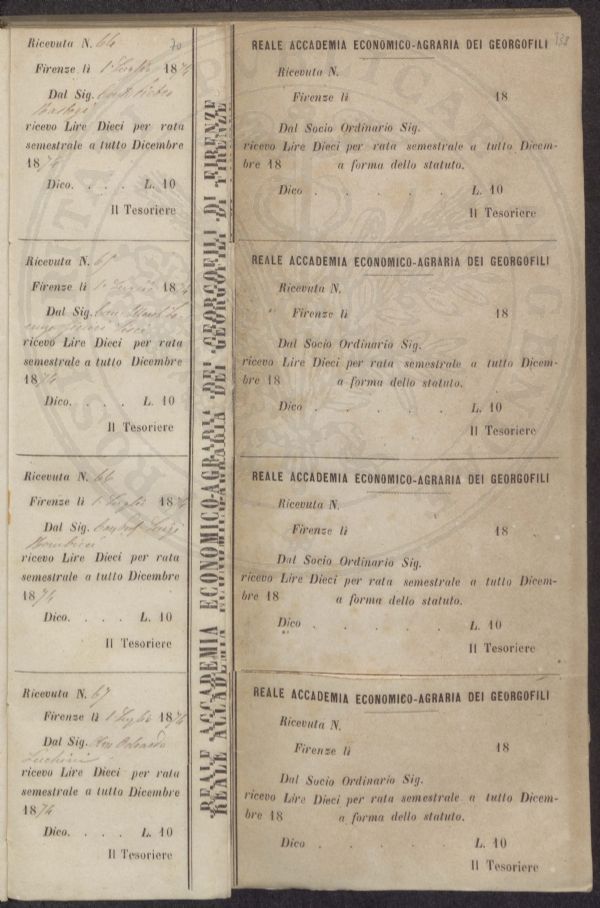 Ricevuta N. 64
70
Firenze lì 1° Luglio 1874
Dal Sig.
ricevo Lire Dieci per rata
semestrale a tutto Dicembre
1874
Dico. . . . L. 10
Il Tesoriere
Ricevuta N. 65
Firenze lì 1° Luglio 1874
Dal Sig.
ricevo Lire Dieci per rata
semestrale a tutto Dicembre
1874
Dico. . . . L. 10
Il Tesoriere
Ricevuta N. 66
Firenze lì 1° Luglio 1874
Dal Sig. Luigi
ricevo Lire Dieci per rata
semestrale a tutto Dicembre
1874
Dico. . . . L. 10
Il Tesoriere
Ricevuta N. 67
Firenze lì 1 Luglio 1874
Dal Sig. Odoardo
Luchini
ricevo Lire Dieci per rata
semestrale a tutto Dicembre
1874
Dico. . . . L. 10
Il Tesoriere
REALE ACCADEMIA ECONOMICO-AGRARIA DEI GEORGOFILI DI FIRENZE
REALE ACCADEMIA ECONOMICO-AGRARIA DEI GEORGOFILI DI FIRENZE
REALE ACCADEMIA ECONOMICO-AGRARIA DEI GEORGOFILI
138
Ricevuta N.
Firenze lì 18
Dal Socio Ordinario Sig.
ricevo Lire Dieci per rata semestrale a tutto Dicem-
bre 18 a forma dello statuto.
Dico . . . . L. 10
Il Tesoriere
REALE ACCADEMIA ECONOMICO-AGRARIA DEI GEORGOFILI
Ricevuta N.
Firenze lì 18
Dal Socio Ordinario Sig.
ricevo Lire Dieci per rata semestrale a tutto Dicem-
bre 18 a forma dello statuto.
Dico . . . . L. 10
Il Tesoriere
REALE ACCADEMIA ECONOMICO-AGRARIA DEI GEORGOFILI
Ricevuta N.
Firenze lì 18
Dal Socio Ordinario Sig.
ricevo Lire Dieci per rata semestrale a tutto Dicem-
bre 18 a forma dello statuto.
Dico . . . . L. 10
Il Tesoriere
REALE ACCADEMIA ECONOMICO-AGRARIA DEI GEORGOFILI
Ricevuta N.
Firenze lì 18
Dal Socio Ordinario Sig.
ricevo Lire Dieci per rata semestrale a tutto Dicem-
bre 18 a forma dello statuto.
Dico . . . . L. 10
Il Tesoriere